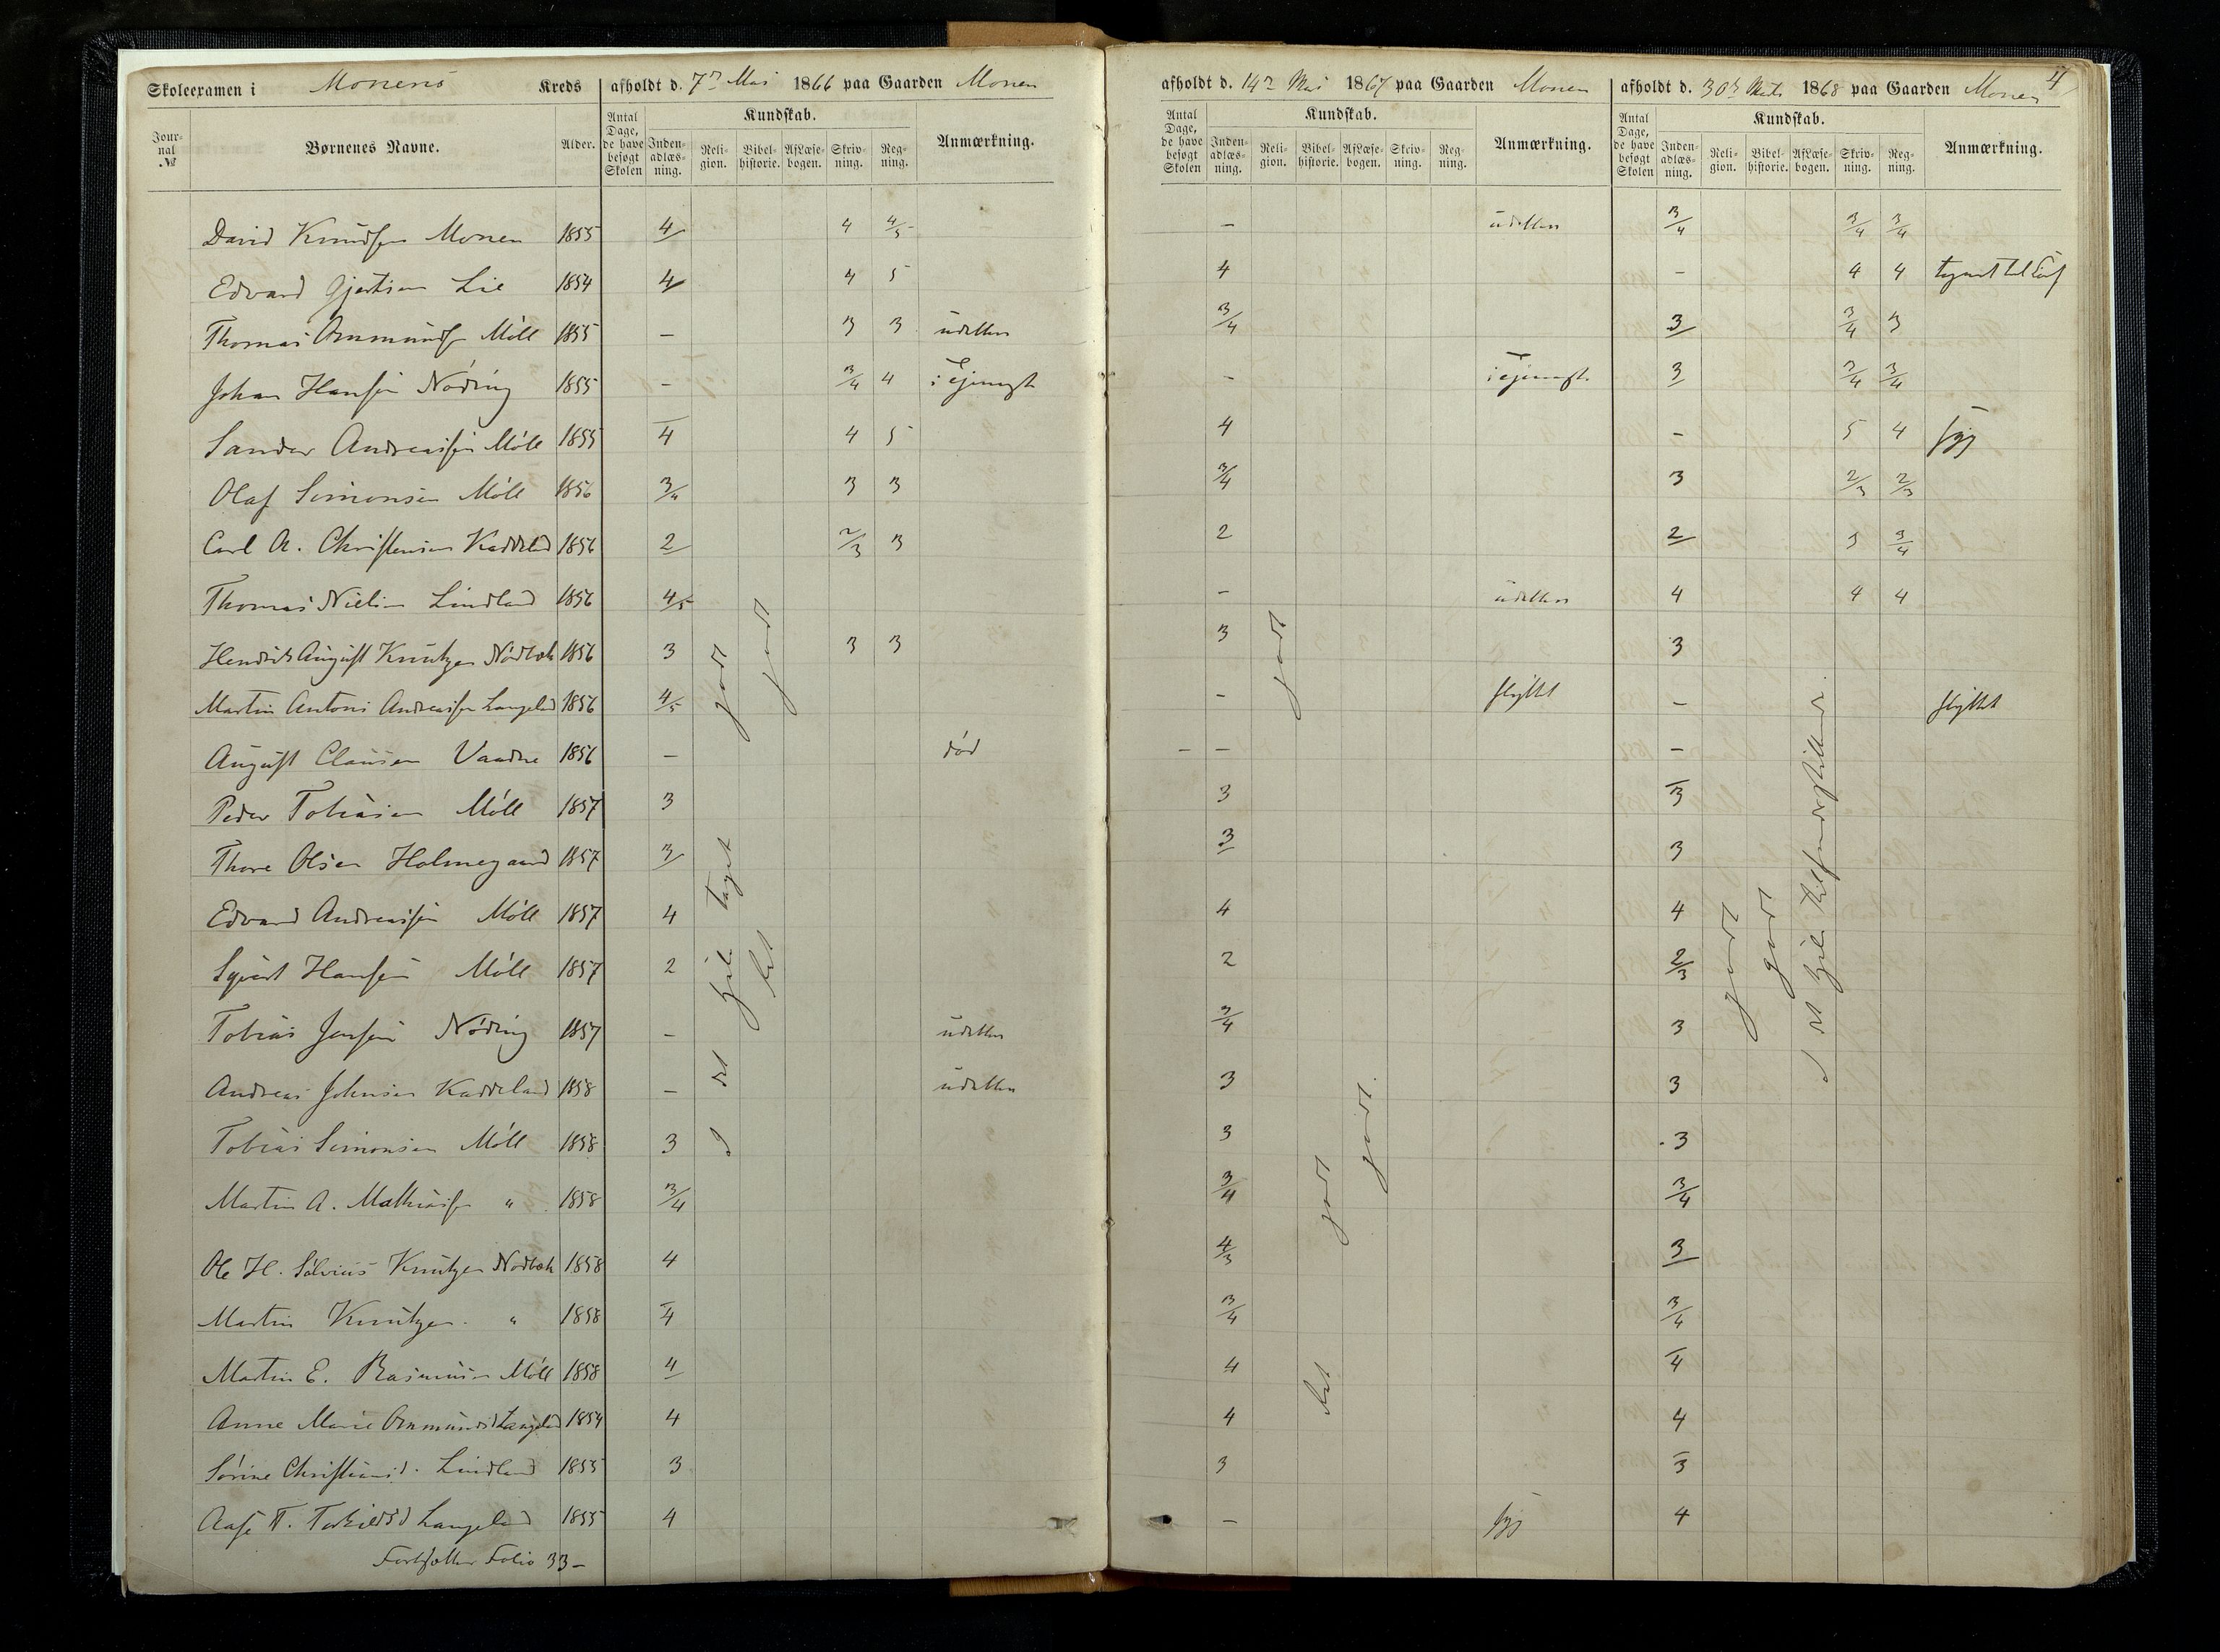 Skoleexamen i Monens Kreds afholdt d. 7de Mai 1866 paa Gaarden Monen
afholdt d. 14de Mai 1867 paa Gaarden Monen
afholdt d. 30de 1868 paa Gaarden Monen
4
Journal № Børnenes Navne. Alder. Antal Dage, de have besøgt Skolen Kundskab. Indenadlæsning. Religion. Bibelhistorie. Af Læsebogen. Skrivning. Regning. Anmærkning.
Antal Dage, de have besøgt Skolen Kundskab. Indenadlæsning. Religion. Bibelhistorie. Af Læsebogen. Skrivning. Regning. Anmærkning.
Antal Dage, de have besøgt Skolen Kundskab. Indenadlæsning. Religion. Bibelhistorie. Af Læsebogen. Skrivning. Regning. Anmærkning.
David Knudsen Monen 1855 4 4 4/5 – udebleven 3/4 3/4 3/4
Edvard Gjertsen Lie 1854 4 4 5 4 – 4 4
Thomas Ommundsen Möll 1855 – 3 3 udebleven 3/4 3 3/4 3
Johan Hansen Nöding 1855 – 3/4 4 i Tjeneste – i Tjeneste 3 3/4 3/4
Sander Andreassen Möll 1855 4 4 5 4 – 5 4 syg
Olaf Simonsen Möll 1856 3/4 3 3 3/4 3 2/3 2/3
Carl A. Christensen Kaddeland 1856 2 2/3 3 2 2 3 3/4
Thomas Nielsen Lindland 1856 4/5 – udebleven 4 4 4
Hendrik August Knutzen Nödbæk 1856 3 3 3 3 3
Martin Antoni Andreassen Langeland 1856 4/5 – flyttet – flyttet
August Clausen Vaadne 1856 – død – – –
Peder Tobiasen Möll 1857 3 3 3
Thore Olsen Holmegaard 1857 3 3 3
Edvard Andreassen Möll 1857 4 4 4
Sigurt Hansen Möll 1857 2 2 2/3
Tobias Jensen Nöding 1857 – udebleven 3/4 3
Andreas Johnsen Kaddeland 1858 – udebleven 3 3
Tobias Simonsen Möll 1858 3 3 3
Martin A. Mathiassen " 1858 3/4 3/4 3/4
Ole H. Sölvius Knutzen Nödbæk 1858 4 4/3 3
Martin Knutzen " 1858 4 3/4 3/4
Martin E. Rasmusen Möll 1858 4 4 4
Anne Marie Ommundsd Langeland 1854 4 4 4
Sörine Christiansd. Lindland 1855 3 3 3
Aase T. Torkildsd Langeland 1855 4 – syg 4
Fortsættes Folio 33 –
I det hele taget godt
let godt
godt
let godt
godt
godt
godt
I det hele tilfredsstillende.